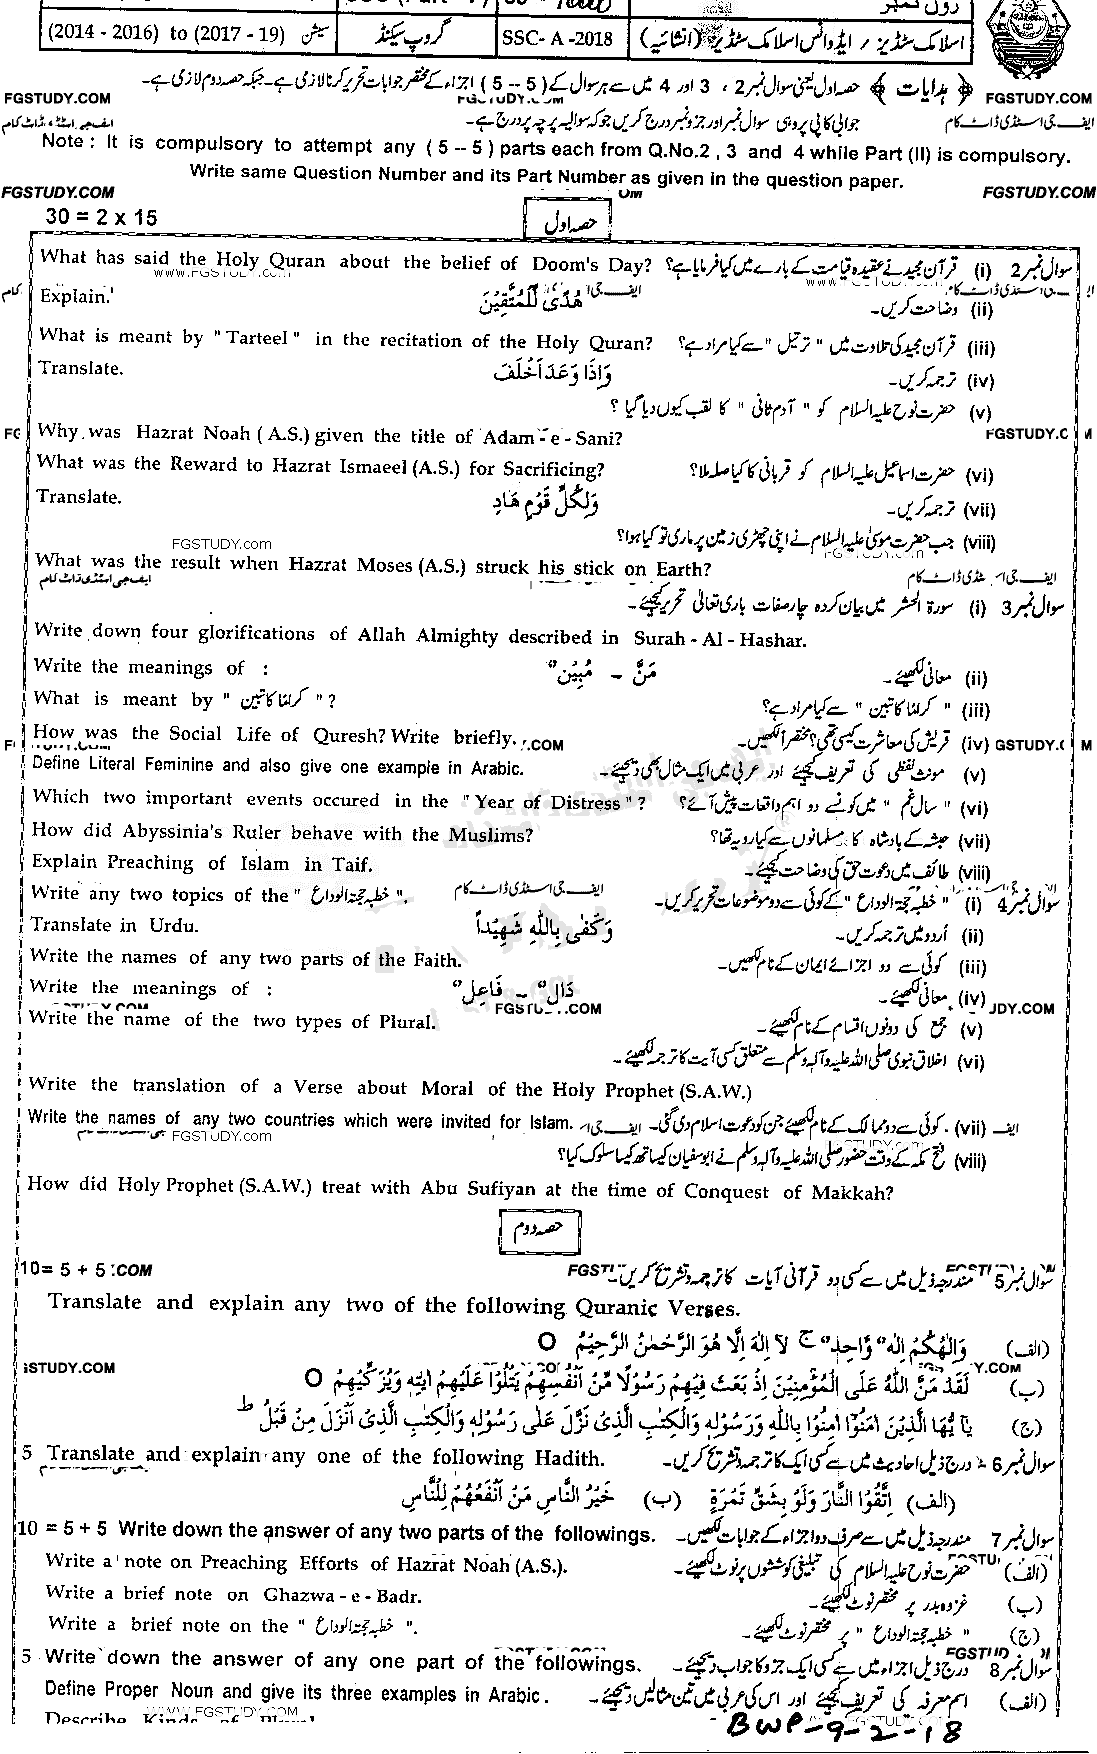 رول نمبر
(2014 - 2016) to (2017 - 19) سیشن گروپ سیکنڈ SSC- A -2018 اسلامک سٹڈیز / ایڈوانس اسلامک سٹڈیز (انشائیہ)
﴿ ہدایات ﴾ حصہ اول یعنی سوال نمبر 2 ، 3 اور 4 میں سے ہر سوال کے ( 5 -- 5 ) اجزاء کے مختصر جوابات تحریر کرنا لازمی ہے۔ جبکہ حصہ دوم لازمی ہے۔
FGSTUDY.COM FGSTUDY.COM FGSTUDY.COM
ایف جی اسٹڈی ڈاٹ کام جوابی کاپی پر وہی سوال نمبر اور جزو نمبر درج کریں جو کہ سوالیہ پرچہ پر درج ہے۔ ایف جی اسٹڈی ڈاٹ کام
Note : It is compulsory to attempt any ( 5 -- 5 ) parts each from Q.No.2 , 3 and 4 while Part (II) is compulsory.
Write same Question Number and its Part Number as given in the question paper.
FGSTUDY.COM OM FGSTUDY.COM
30 = 2 x 15 حصہ اول
What has said the Holy Quran about the belief of Doom's Day? سوال نمبر 2 (i) قرآن مجید نے عقیدہ قیامت کے بارے میں کیا فرمایا ہے؟
Explain. هُدًى لِّلْمُتَّقِيْنَ (ii) وضاحت کریں۔
What is meant by " Tarteel " in the recitation of the Holy Quran? (iii) قرآن مجید کی تلاوت میں " ترتیل " سے کیا مراد ہے؟
Translate. وَاِذَا وَعَدَ اَخْلَفَ (iv) ترجمہ کریں۔
(v) حضرت نوح علیہ السلام کو " آدم ثانی " کا لقب کیوں دیا گیا ؟
Why was Hazrat Noah ( A.S.) given the title of Adam - e - Sani? FGSTUDY.C
What was the Reward to Hazrat Ismaeel (A.S.) for Sacrificing? (vi) حضرت اسماعیل علیہ السلام کو قربانی کا کیا صلہ ملا؟
Translate. وَلِكُلِّ قَوْمٍ هَادٍ (vii) ترجمہ کریں۔
FGSTUDY.com (viii) جب حضرت موسیٰ علیہ السلام نے اپنی چھڑی زمین پر ماری تو کیا ہوا؟
What was the result when Hazrat Moses (A.S.) struck his stick on Earth?
سوال نمبر 3 (i) سورۃ الحشر میں بیان کردہ چار صفات باری تعالیٰ تحریر کیجئے۔
Write down four glorifications of Allah Almighty described in Surah - Al - Hashar.
Write the meanings of : مَنَّ - مُبِيْنٌ (ii) معانی لکھیے۔
What is meant by " کراماً کاتبین " ? (iii) " کراماً کاتبین " سے کیا مراد ہے؟
How was the Social Life of Quresh? Write briefly. (iv) قریش کی معاشرت کیسی تھی؟ مختصراً لکھیں۔
Define Literal Feminine and also give one example in Arabic. (v) مونث لفظی کی تعریف کیجئے اور عربی میں ایک مثال بھی دیجیئے۔
Which two important events occured in the " Year of Distress " ? (vi) " سال غم " میں کونسے دو اہم واقعات پیش آئے؟
How did Abyssinia's Ruler behave with the Muslims? (vii) حبشہ کے بادشاہ کا مسلمانوں سے کیا رویہ تھا؟
Explain Preaching of Islam in Taif. (viii) طائف میں دعوت حق کی وضاحت کیجئے۔
Write any two topics of the " خطبہ حجۃ الوداع ". سوال نمبر 4 (i) " خطبہ حجۃ الوداع " کے کوئی سے دو موضوعات تحریر کریں۔
Translate in Urdu. وَكَفٰى بِاللّٰهِ شَهِيْدًا (ii) اُردو میں ترجمہ کریں۔
Write the names of any two parts of the Faith. (iii) کوئی سے دو اجزائے ایمان کے نام لکھیں۔
Write the meanings of : دَالٌّ - فَاعِلٌ (iv) معانی لکھیئے۔
Write the name of the two types of Plural. (v) جمع کی دونوں اقسام کے نام لکھیئے۔
(vi) اخلاق نبوی صلی اللہ علیہ وآلہ وسلم سے متعلق کسی آیت کا ترجمہ لکھیئے۔
Write the translation of a Verse about Moral of the Holy Prophet (S.A.W.)
Write the names of any two countries which were invited for Islam. (vii) کوئی سے دو ممالک کے نام لکھیئے جن کو دعوت اسلام دی گئی۔
FGSTUDY.com (viii) فتح مکہ کے وقت حضور صلی اللہ علیہ وآلہ وسلم نے ابوسفیان کیساتھ کیسا سلوک کیا؟
How did Holy Prophet (S.A.W.) treat with Abu Sufiyan at the time of Conquest of Makkah?
حصہ دوم
10= 5 + 5 سوال نمبر 5 مندرجہ ذیل میں سے کسی دو قرآنی آیات کا ترجمہ و تشریح کریں۔
Translate and explain any two of the following Quranic Verses.
(الف) وَاِلٰهُكُمْ اِلٰهٌ وَّاحِدٌ ج لَا اِلٰهَ اِلَّا هُوَ الرَّحْمٰنُ الرَّحِيْمُ O
(ب) لَقَدْ مَنَّ اللّٰهُ عَلَى الْمُؤْمِنِيْنَ اِذْ بَعَثَ فِيْهِمْ رَسُوْلًا مِّنْ اَنْفُسِهِمْ يَتْلُوْا عَلَيْهِمْ اٰيٰتِهٖ وَيُزَكِّيْهِمْ O
(ج) يٰۤاَيُّهَا الَّذِيْنَ اٰمَنُوْا اٰمِنُوْا بِاللّٰهِ وَرَسُوْلِهٖ وَالْكِتٰبِ الَّذِىْ نَزَّلَ عَلٰى رَسُوْلِهٖ وَالْكِتٰبِ الَّذِىْ اَنْزَلَ مِنْ قَبْلُ ط
5 Translate and explain any one of the following Hadith. سوال نمبر 6 درج ذیل احادیث میں سے کسی ایک کا ترجمہ و تشریح کریں۔
(الف) اِتَّقُوا النَّارَ وَلَوْ بِشِقِّ تَمْرَةٍ (ب) خَيْرُ النَّاسِ مَنْ اَنْفَعُهُمْ لِلنَّاسِ
10 = 5 + 5 Write down the answer of any two parts of the followings. سوال نمبر 7 مندرجہ ذیل میں سے صرف دو اجزاء کے جوابات لکھیں۔
Write a note on Preaching Efforts of Hazrat Noah (A.S.). (الف) حضرت نوح علیہ السلام کی تبلیغی کوششوں پر نوٹ لکھیئے۔
Write a brief note on Ghazwa - e - Badr. (ب) غزوہ بدر پر مختصر نوٹ لکھیئے۔
Write a brief note on the " خطبہ حجۃ الوداع ". (ج) " خطبہ حجۃ الوداع " پر مختصر نوٹ لکھیئے۔
5 Write down the answer of any one part of the followings. سوال نمبر 8 درج ذیل اجزاء میں سے کسی ایک جزو کا جواب دیجیئے۔
Define Proper Noun and give its three examples in Arabic. (الف) اسم معرفہ کی تعریف کیجئے اور اس کی عربی میں تین مثالیں دیجیئے۔
Describe Kinds of Plural
BWP-9-2-18